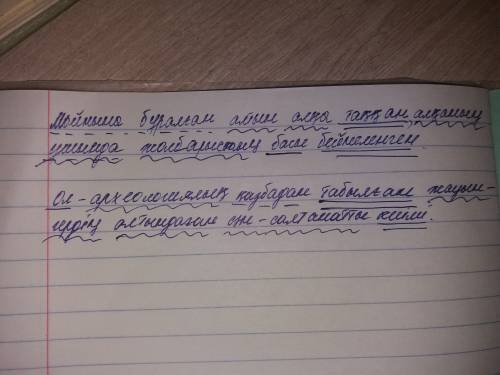 Мойнына бұралған алтын алқа таққан алқаның
ұшында жолбарыстың басы бейнеленген.
Ол - археологиялық қазбадан табылған жауын-
гердің алтындаған сән-салтанатты киімі.